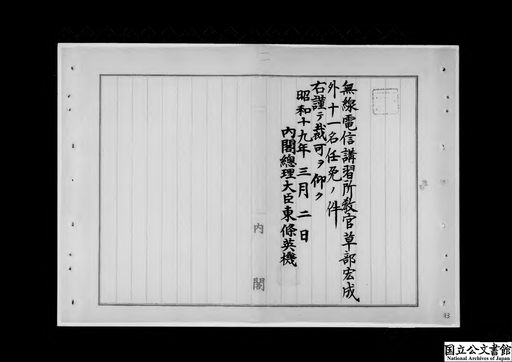 無線電信講習所教官草部宏成
外十一名任免ノ件
右謹テ裁可ヲ仰ク
昭和十九年三月二日
内閣總理大臣東條英機
内閣
国立公文書館
National Archives of Japan